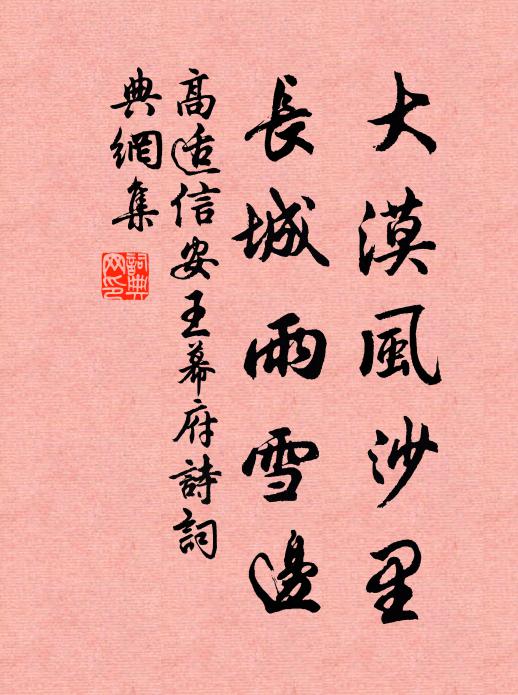 大漠風沙里
長城雨雪邊
高适信安王幕府詩詞
典網集
詞典網印